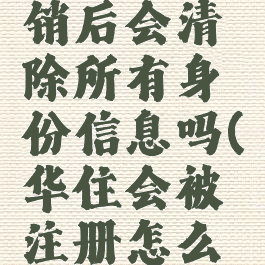 销后会清
除所有身
份信息吗(
华住会被
注册怎么